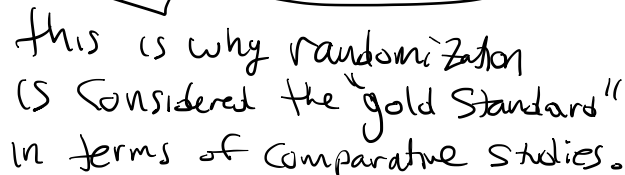 this is why randomization
is considered the "gold standard"
in terms of comparative studies.